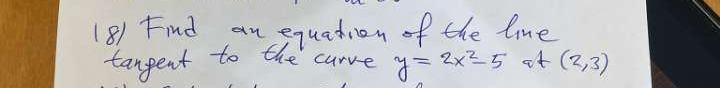 18) Find an equation of the line
tangent to the curve y = 2x²-5 at (2,3)